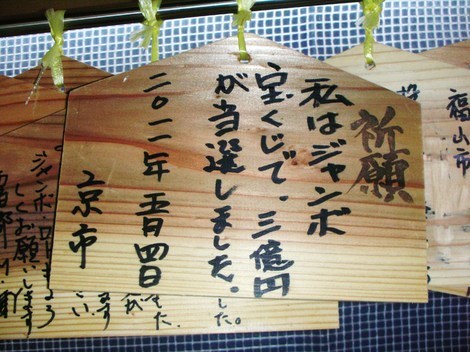 祈願
私はジャンボ
宝くじで、三億円
が当選しました。
二〇一一年 五月四日
京市
福山市
ジャンボ
しくお願いします
した。